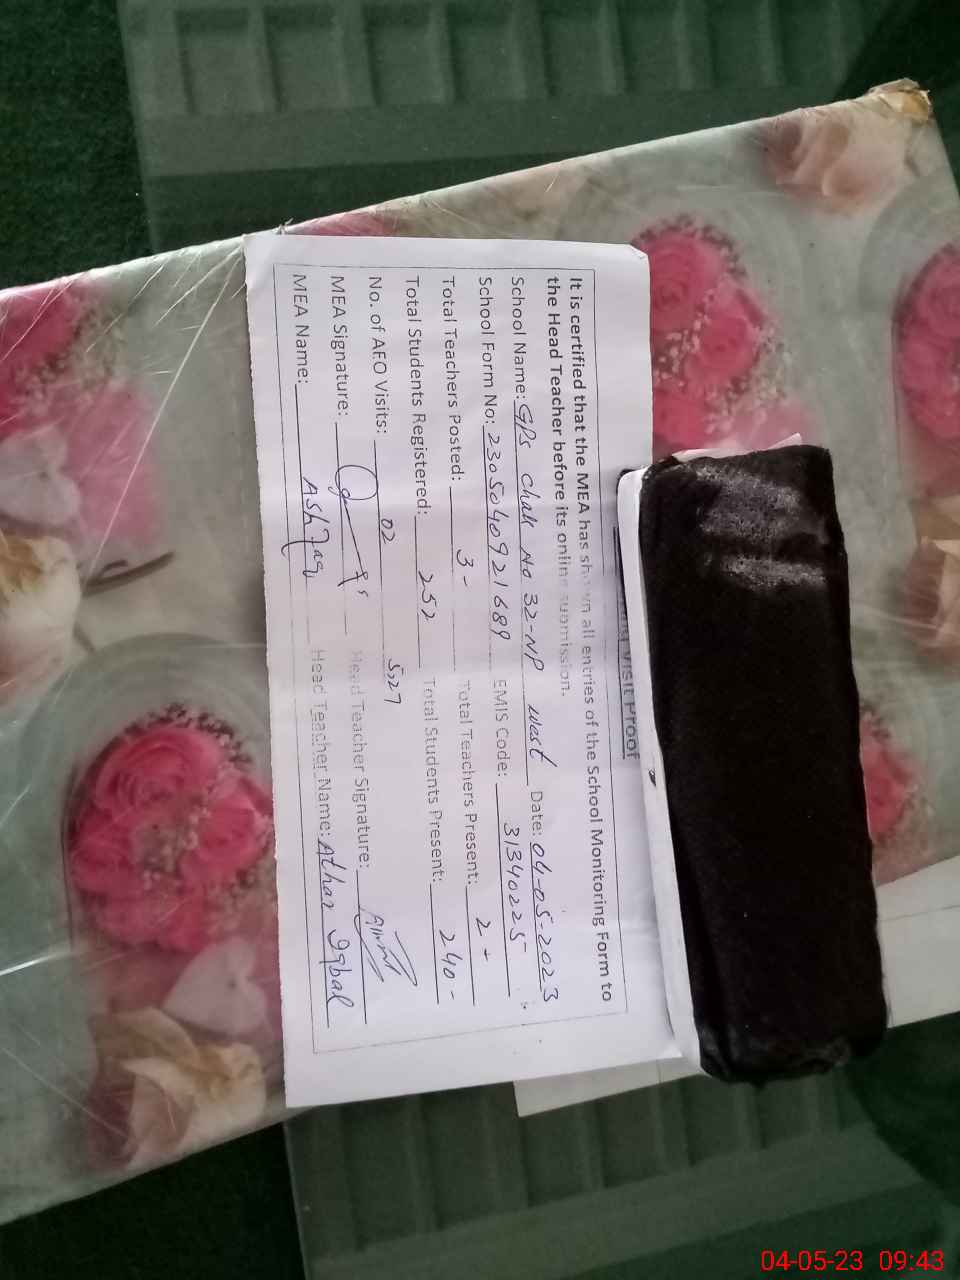 visit Proof
It is certified that the MEA has shown all entries of the School Monitoring Form to
the Head Teacher before its online submission.
School Name: GPS Chak No 32-NP West Date: 04-05-2023
School Form No: 2305040921689 EMIS Code: 31340225
Total Teachers Posted: 3 - Total Teachers Present: 2 +
Total Students Registered: 252 Total Students Present: 240 -
No. of AEO Visits: 02 5027
MEA Signature: Head Teacher Signature:
MEA Name: Ashfaq Head Teacher Name: Athar Iqbal
04-05-23 09:43